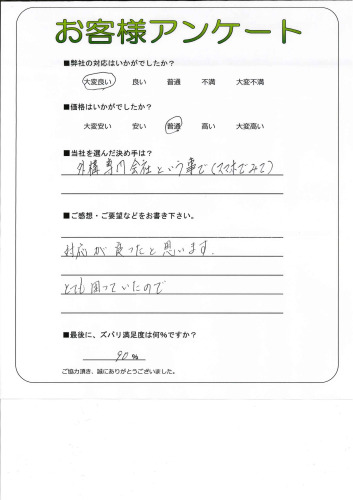 お客様アンケート
■弊社の対応はいかがでしたか？
大変良い 良い 普通 不満 大変不満
■価格はいかがでしたか？
大変安い 安い 普通 高い 大変高い
■当社を選んだ決め手は？
外構専門会社という事で(スマホでみて)
■ご感想・ご要望などをお書き下さい。
対応が良かったと思います。
とても困っていたので
■最後に、ズバリ満足度は何%ですか？
90 %
ご協力頂き、誠にありがとうございました。